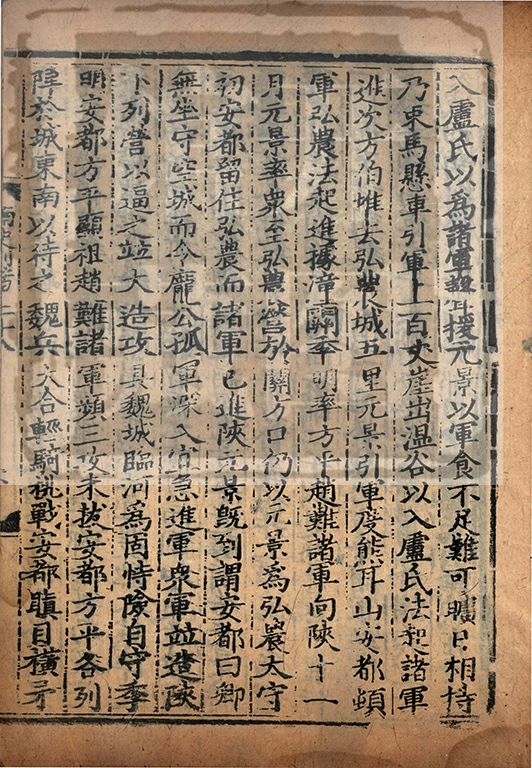 入盧氏以為諸軍聲援元景以軍食不足難可曠日相持
乃束馬懸車引軍上百丈崖出溫谷以入盧氏法起諸軍
進次方伯堆去弘農城五里元景引軍度熊耳山安都頓
軍弘農法起進據潼關季明率方平趙難諸軍向陝十一
月元景率衆至弘農營於關方口仍以元景為弘農太守
初安都留住弘農而諸軍已進陝元景既到謂安都曰卿
無坐守空城而令龐公孤軍深入宜急進軍衆軍並造陝
下列營以逼之並大造攻具魏城臨河為固恃險自守季
明安都方平顯祖趙難諸軍頻三攻未拔安都方平各列
陣於城東南以待之魏兵大合輕騎挑戰安都瞋目橫矛